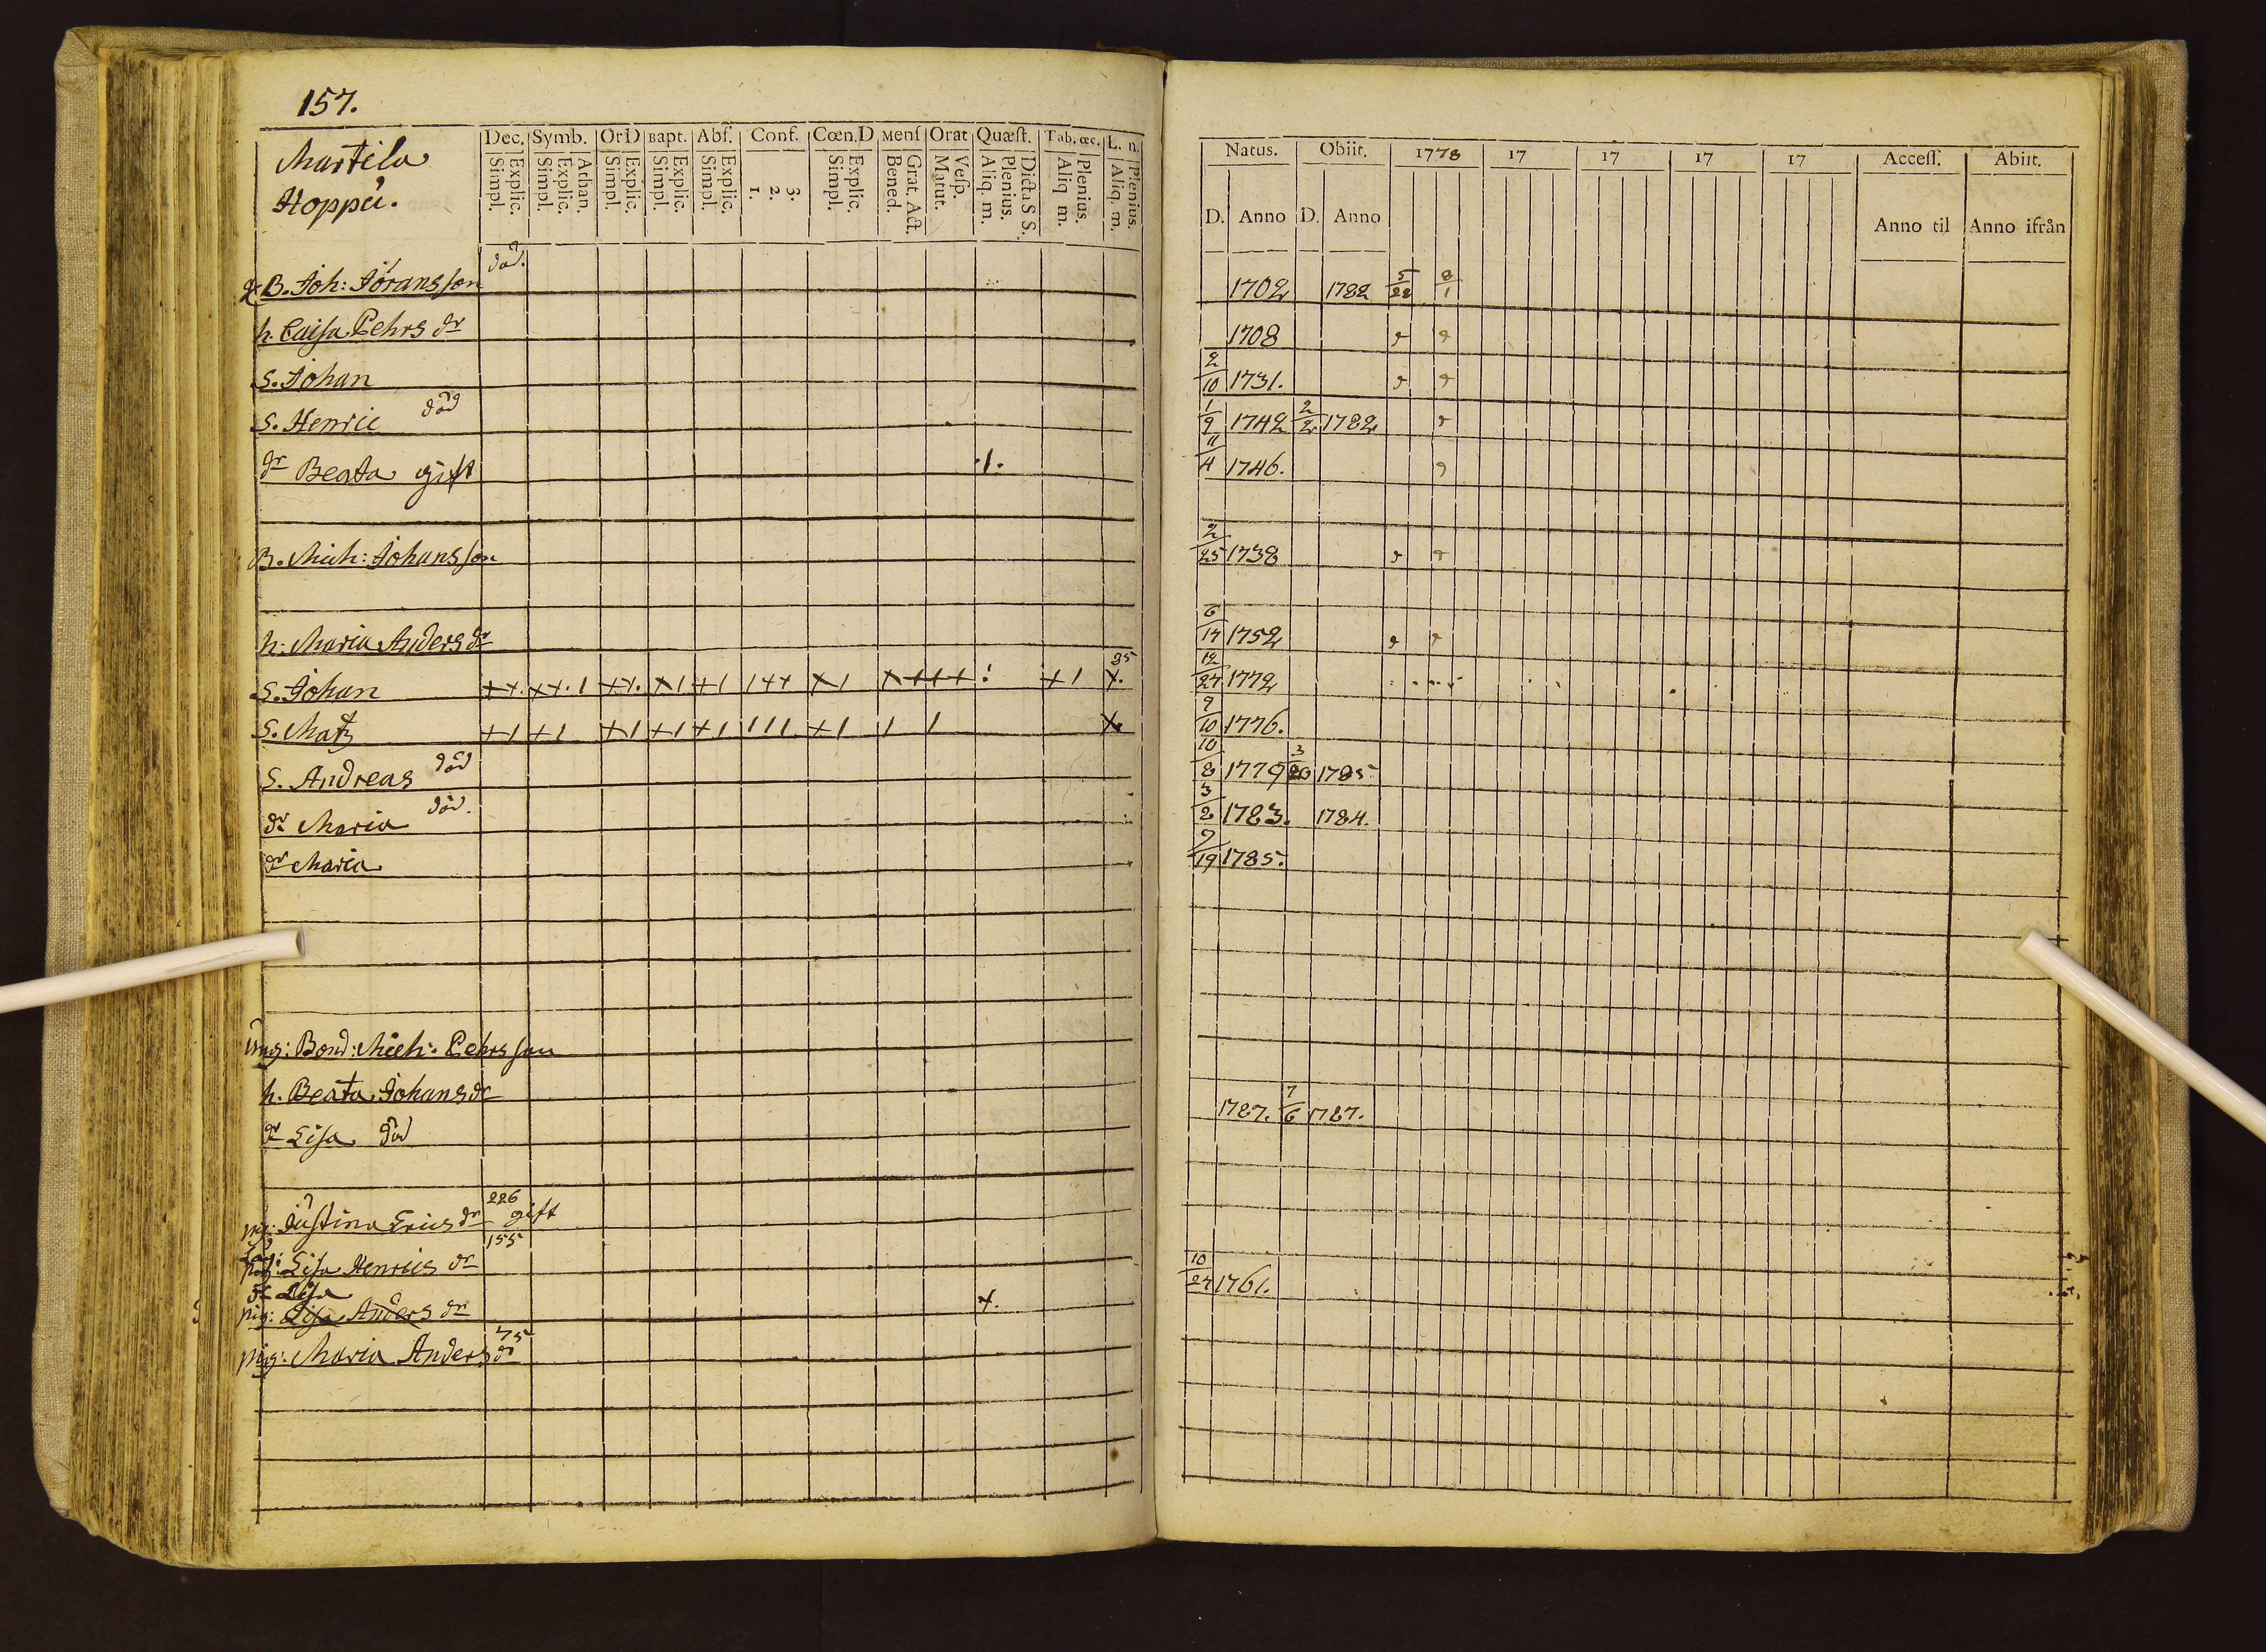 157.
Martila
Hoppu.
Dec. Symb. OrD Bapt. Abs. Conf. Cœn.D Mens Orat Quæst. Tab. œc. L. n.
Simpl. Explic. Simpl. Explic. Athan. Simpl. Explic. Simpl. Explic. Simpl. Explic. 1. 2. 3. Simpl. Explic. Bened. Grat. Act. Matut. Vesp. Aliq. m. Plenius. Dicta S S. Aliq m. Plenius. Aliq. m. Plenius.
B. Joh: Jöransson död.
h. Caisa Pehrs dr
S. Johan
S. Henric död
dr Beata gift
B. Mich: Johansson
h: Maria Anders dr
S. Johan
S. Matz
S. Andreas död
dr Maria död.
dr Maria
Bond: Mich: Pehrsson
h. Beata Johans dr
dr Lisa död
226
pig: Justina Erics dr gift
155
Lisa Henrics dr
dr Lisa
pig: Lisa Anders dr
75
pig: Maria Anders dr
Natus. Obiit. 1778 17 17 17 17 Access. Abiit.
D. Anno D. Anno Anno til Anno ifrån
1702 1782 5/22 8/1
1708
2/10 1731.
1/9 1742 2/2 1782
11/4 1746.
2/25 1738
6/17 1752
12/27 1772
9/10 1776.
10/8 1779 3/20 1785
3/2 1783. 1784.
9/19 1785.
1787. 7/6 1787.
10/27 1761.